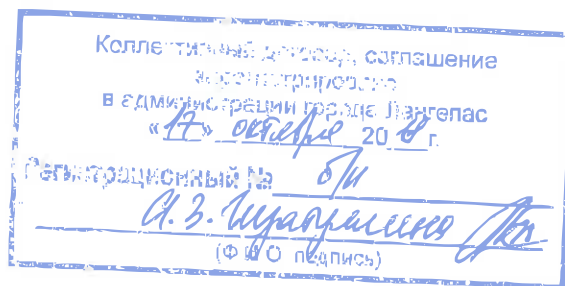 Коллективный договор, соглашение
зарегистрировано
в администрации города Лангепас
«17» октября 2018 г.
Регистрационный № б/н
И.З.
(Ф И О подпись)